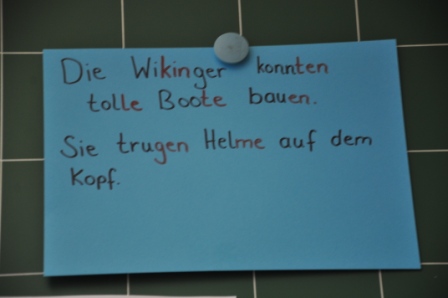 Die Wikinger konnten
tolle Boote bauen.
Sie trugen Helme auf dem
Kopf.